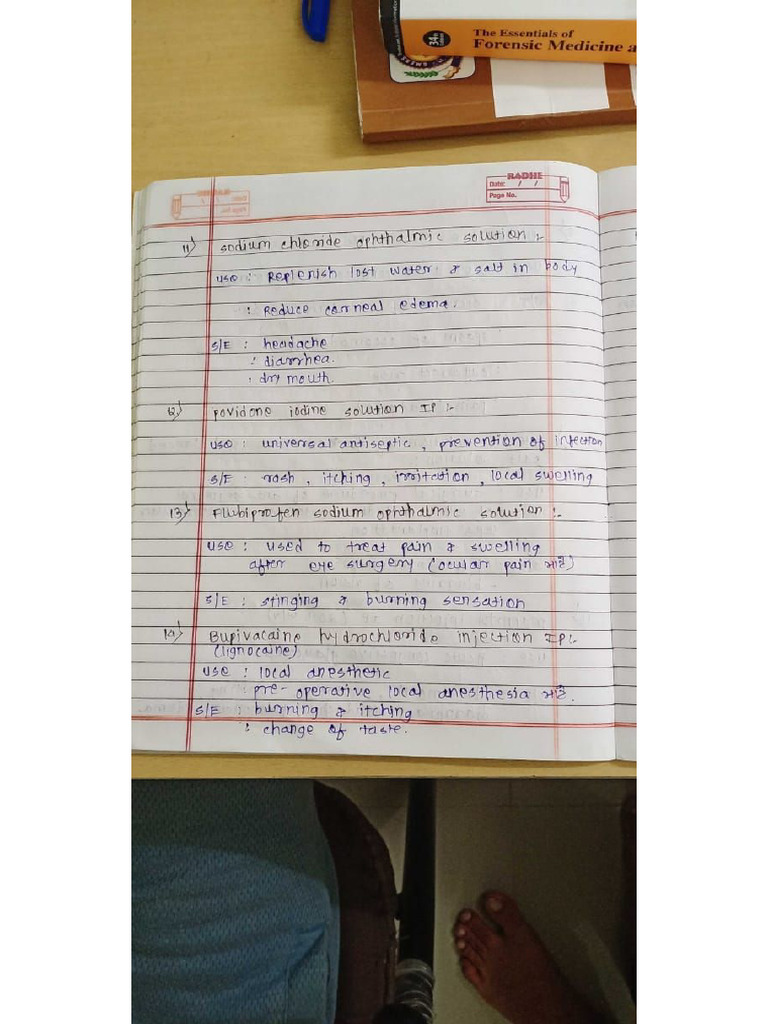 34th
Edition
The Essentials of
Forensic Medicine a
RADHE
Date: / /
Page No.
11) Sodium chloride ophthalmic solution :-
use : Replenish lost water & salt in body
: Reduce corneal edema.
S/E : headache
: diarrhea.
: dry mouth.
12) povidone iodine solution IP :-
use : universal antiseptic , prevention of infection
S/E : rash , itching , irritation , local swelling
13) Flubiprofen sodium ophthalmic solution :-
use : used to treat pain & swelling
after eye surgery (ocular pain માટે)
S/E : stinging & burning sensation
14) Bupivacaine hydrochloride injection IP:-
(lignocaine)
use : local anesthetic
: pre-operative local anesthesia માટે.
S/E : burning & itching
: change of taste.